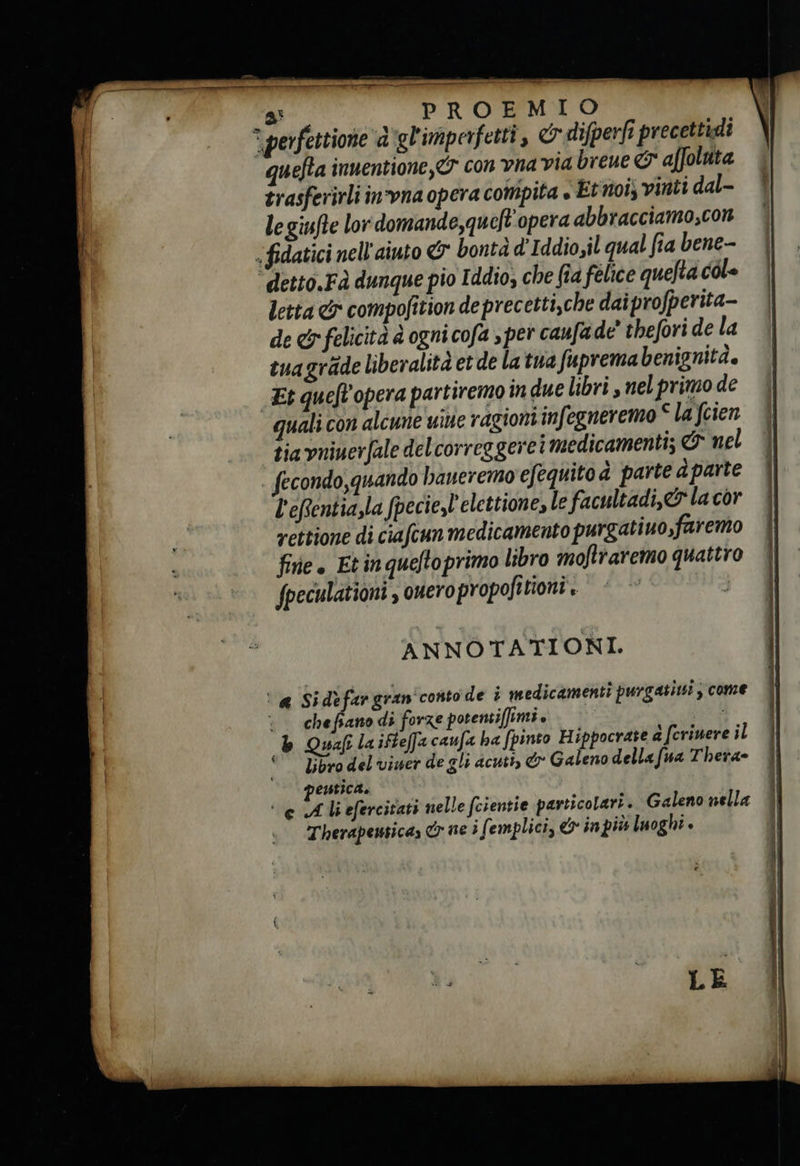 PROEMIO
perfettione à gl'imperfetti, & diſperſi precetti di
queſta inuentione, & con vna via breue & aſſoluta
trasferirli in vna opera compita. Et noi, vinti dal-
le giuſte lor domande, queſt'opera abbracciamo, con
fidatici nell'aiuto & bontà d'Iddio, il qual ſia bene-
detto. Fà dunque pio Iddio, che ſia felice queſta col-
letta & compoſition de precetti, che dai proſperita-
de & felicità à ogni coſa, per cauſa de' theſori de la
tua grãde liberalità et de la tua ſuprema benignità.
Et queſt'opera partiremo in due libri, nel primo de
quali con alcune uiue ragioni inſegneremo c la ſcien
tia vniuerſale del correggere i medicamenti; & nel
ſecondo, quando haueremo eſequito à parte à parte
l'eſſentia, la ſpecie, l'elettione, le facultadi, & la cor
rettione di ciaſcun medicamento purgatiuo, faremo
fine. Et in queſto primo libro moſtraremo quattro
ſpeculationi, ouero propoſitioni.
ANNOTATIONI.
a Si dè far gran conto de i medicamenti purgatiui, come
che ſiano di forze potentiſſimi.
b Quaſi la iſteſſa cauſa ha ſpinto Hippocrate à ſcriuere il
libro del viuer de gli acuti, & Galeno della ſua Thera-
peutica.
c A li eſercitati nelle ſcientie particolari. Galeno nella
Therapeutica, & ne i ſemplici, & in più luoghi.
LE